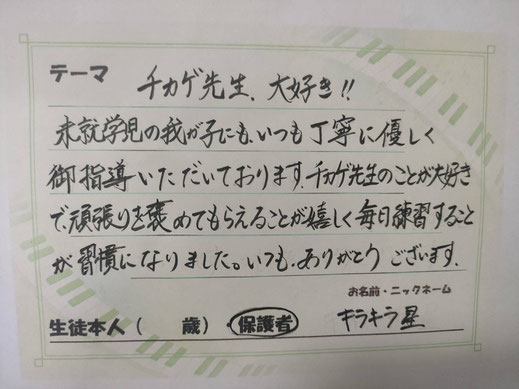 テーマ チカゲ先生、大好き!!
未就学児の我が子にも、いつも丁寧に優しく
御指導いただいております。チカゲ先生のことが大好き
で、頑張りを褒めてもらえることが嬉しく毎日練習すること
が習慣になりました。いつも、ありがとうございます。
お名前・ニックネーム
生徒本人( 歳)・保護者 キラキラ星